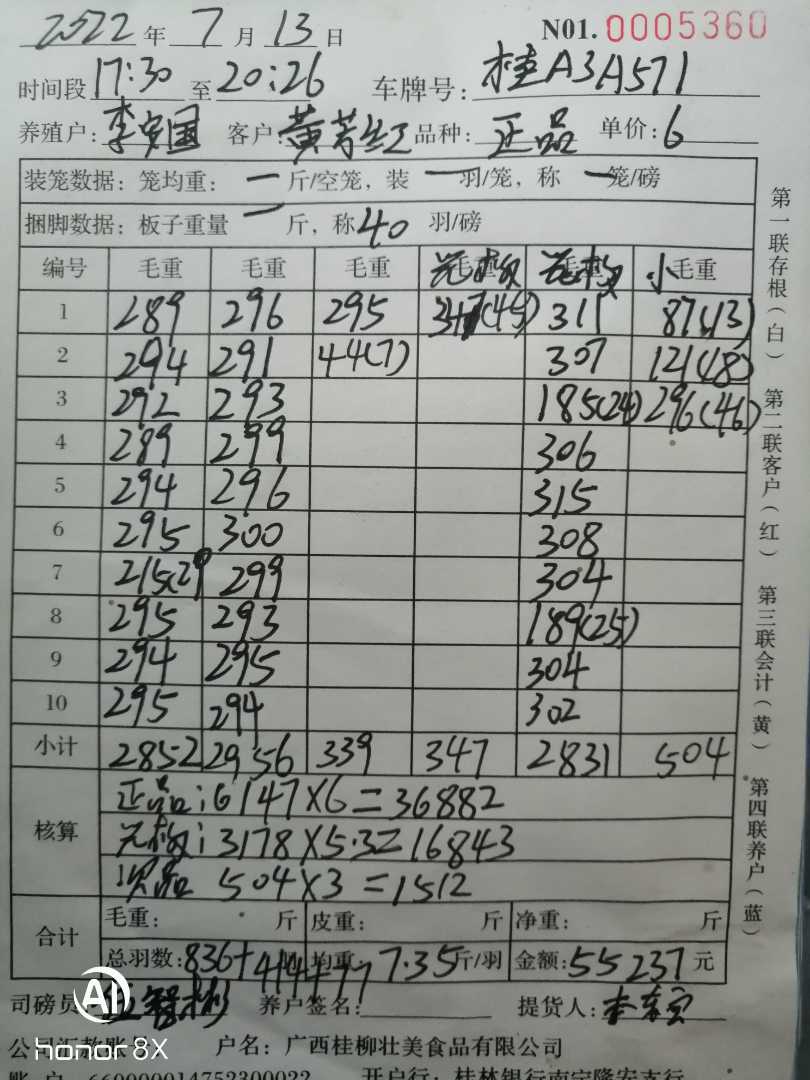 2022 年 7 月 13 日 N01. 0005360
时间段 17:30 至 20:26 车牌号: 桂A3A571
养殖户: 李宝国 客户: 黄芳红 品种: 正品 单价: 6
装笼数据: 笼均重: 一 斤/空笼, 装 一 羽/笼, 称 一 笼/磅
捆脚数据: 板子重量 一 斤, 称 40 羽/磅
编号 毛重 毛重 毛重 毛重 毛重 小毛重
1 289 296 295 347(45) 311 87(13)
2 294 291 44(7) 307 121(18)
3 292 293 185(24) 296(46)
4 289 299 306
5 294 296 315
6 295 300 308
7 215(29 299 304
8 295 293 189(25)
9 294 295 304
10 295 294 302
小计 2852 2956 339 347 2831 504
核算
正品: 6147×6=36882
3178×5.3=16843
次品 504×3=1512
合计
毛重: 斤 皮重: 斤 净重: 斤
总羽数: 836+414+77 均重: 7.35 斤/羽 金额: 55237 元
司磅员: 养户签名: 提货人:
公司汇款账 户名: 广西桂柳壮美食品有限公司
账 户 660000014752300022 开户行: 桂林银行南宁隆安支行
第一联存根(白) 第二联客户(红) 第三联会计(黄) 第四联养户(蓝)
AI
honor 8X